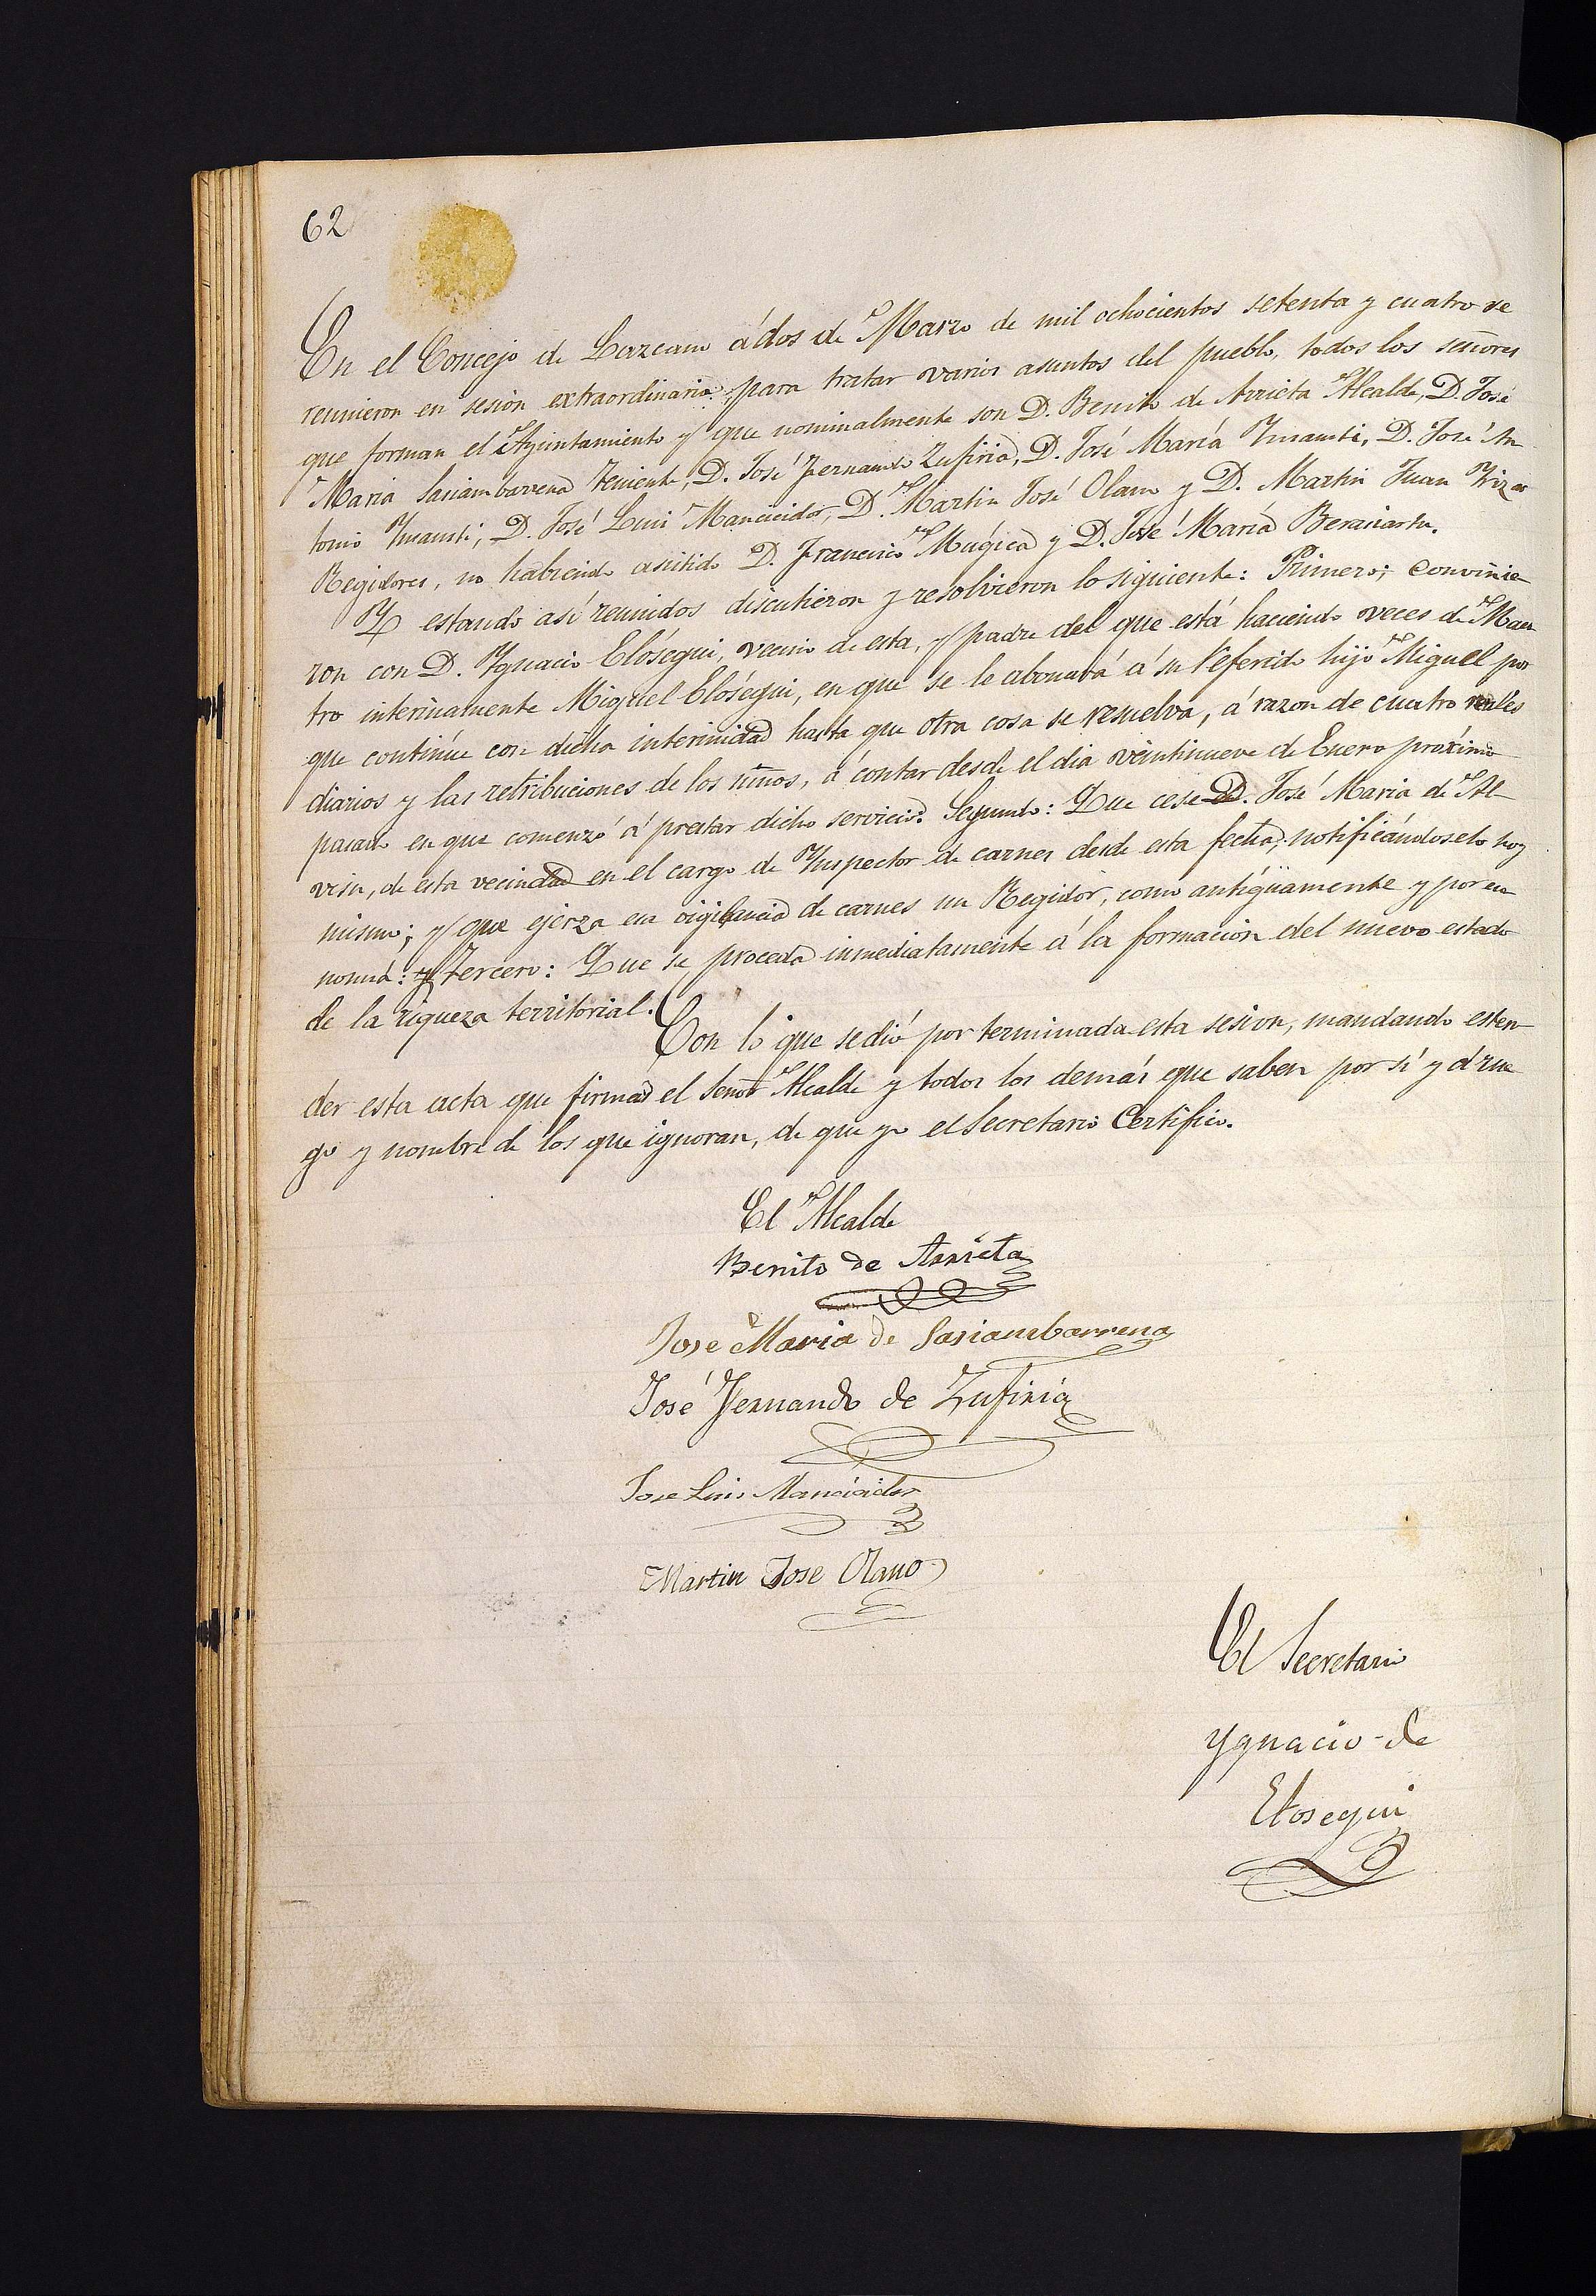 62
En el Concejo de Lazcano á dos de Marzo de mil ochocientos setenta y cuatro se
reunieron en sesion extraordinaria, para tratar varios asuntos del pueblo, todos los señores
que forman el Ayuntamiento y que nominalmente son D. Benito de Arrieta Alcalde, D. José
Maria Sasiambarrena Teniente, D. José Fernando Zufiria, D. José María Ymausti, D. José An
tonio Ymausti, D. José Luis Mancicidor, D. Martin José Olano y D. Martin Juan Yrizar
Regidores, no habiendo asistido D. Francisco Mugica y D. José María Berasiartu.
Y estando así reunidos discutieron y resolvieron lo siguiente: Primero; convinie
ron con D. Ygnacio Elósegui, vecino de esta, y padre del que está haciendo veces de Maes
tro interinamente Miguel Elósegui, en que se le abonará á su referido hijo Miguel por
que continúe con dicha interinidad hasta que otra cosa se resuelva, á razon de cuatro reales
diarios y las retribuciones de los niños, á contar desde el dia veintinueve de Enero próximo
pasado en que comenzó á prestar dicho servicio. Segundo: Que cese D. José Maria de Al-
visu, de esta vecindad en el cargo de Ynspector de carnes desde esta fecha, notificándoselo hoy
mismo; y que ejerza esa vigilancia de carnes un Regidor, como antigüamente y por eco
nomía: y Tercero: Que se proceda inmediatamente á la formacion del nuevo estado
de la riqueza territorial.
Con lo que se dió por terminada esta sesion, mandando esten
der esta acta que firma el Señor Alcalde y todos los demás que saben por sí y á rue
go y nombre de los que ignoran, de que yo el Secretario Certifico.
El Alcalde
Benito de Arrieta
Jose Maria de Sasiambarrena
José Fernando de Zufiria
Jose Luis Mancicidor
Martin Jose Olano
El Secretario
Ygnacio de
Elosegui